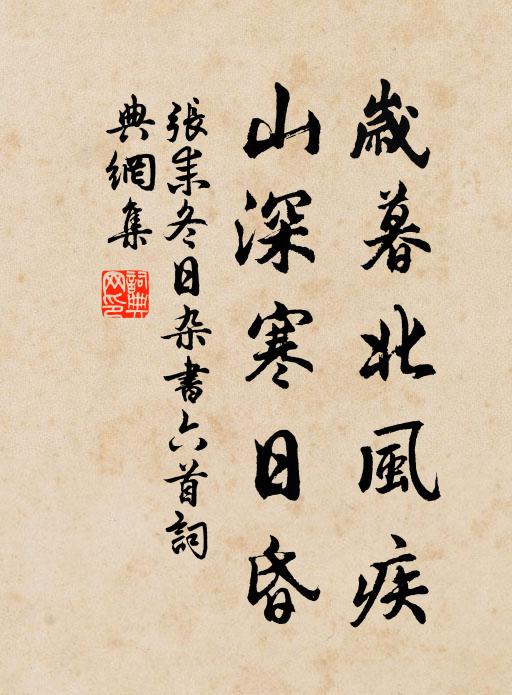 歲暮北風疾
山深寒日昏
張耒冬日杂書六首詞
典網集
詞典
网印